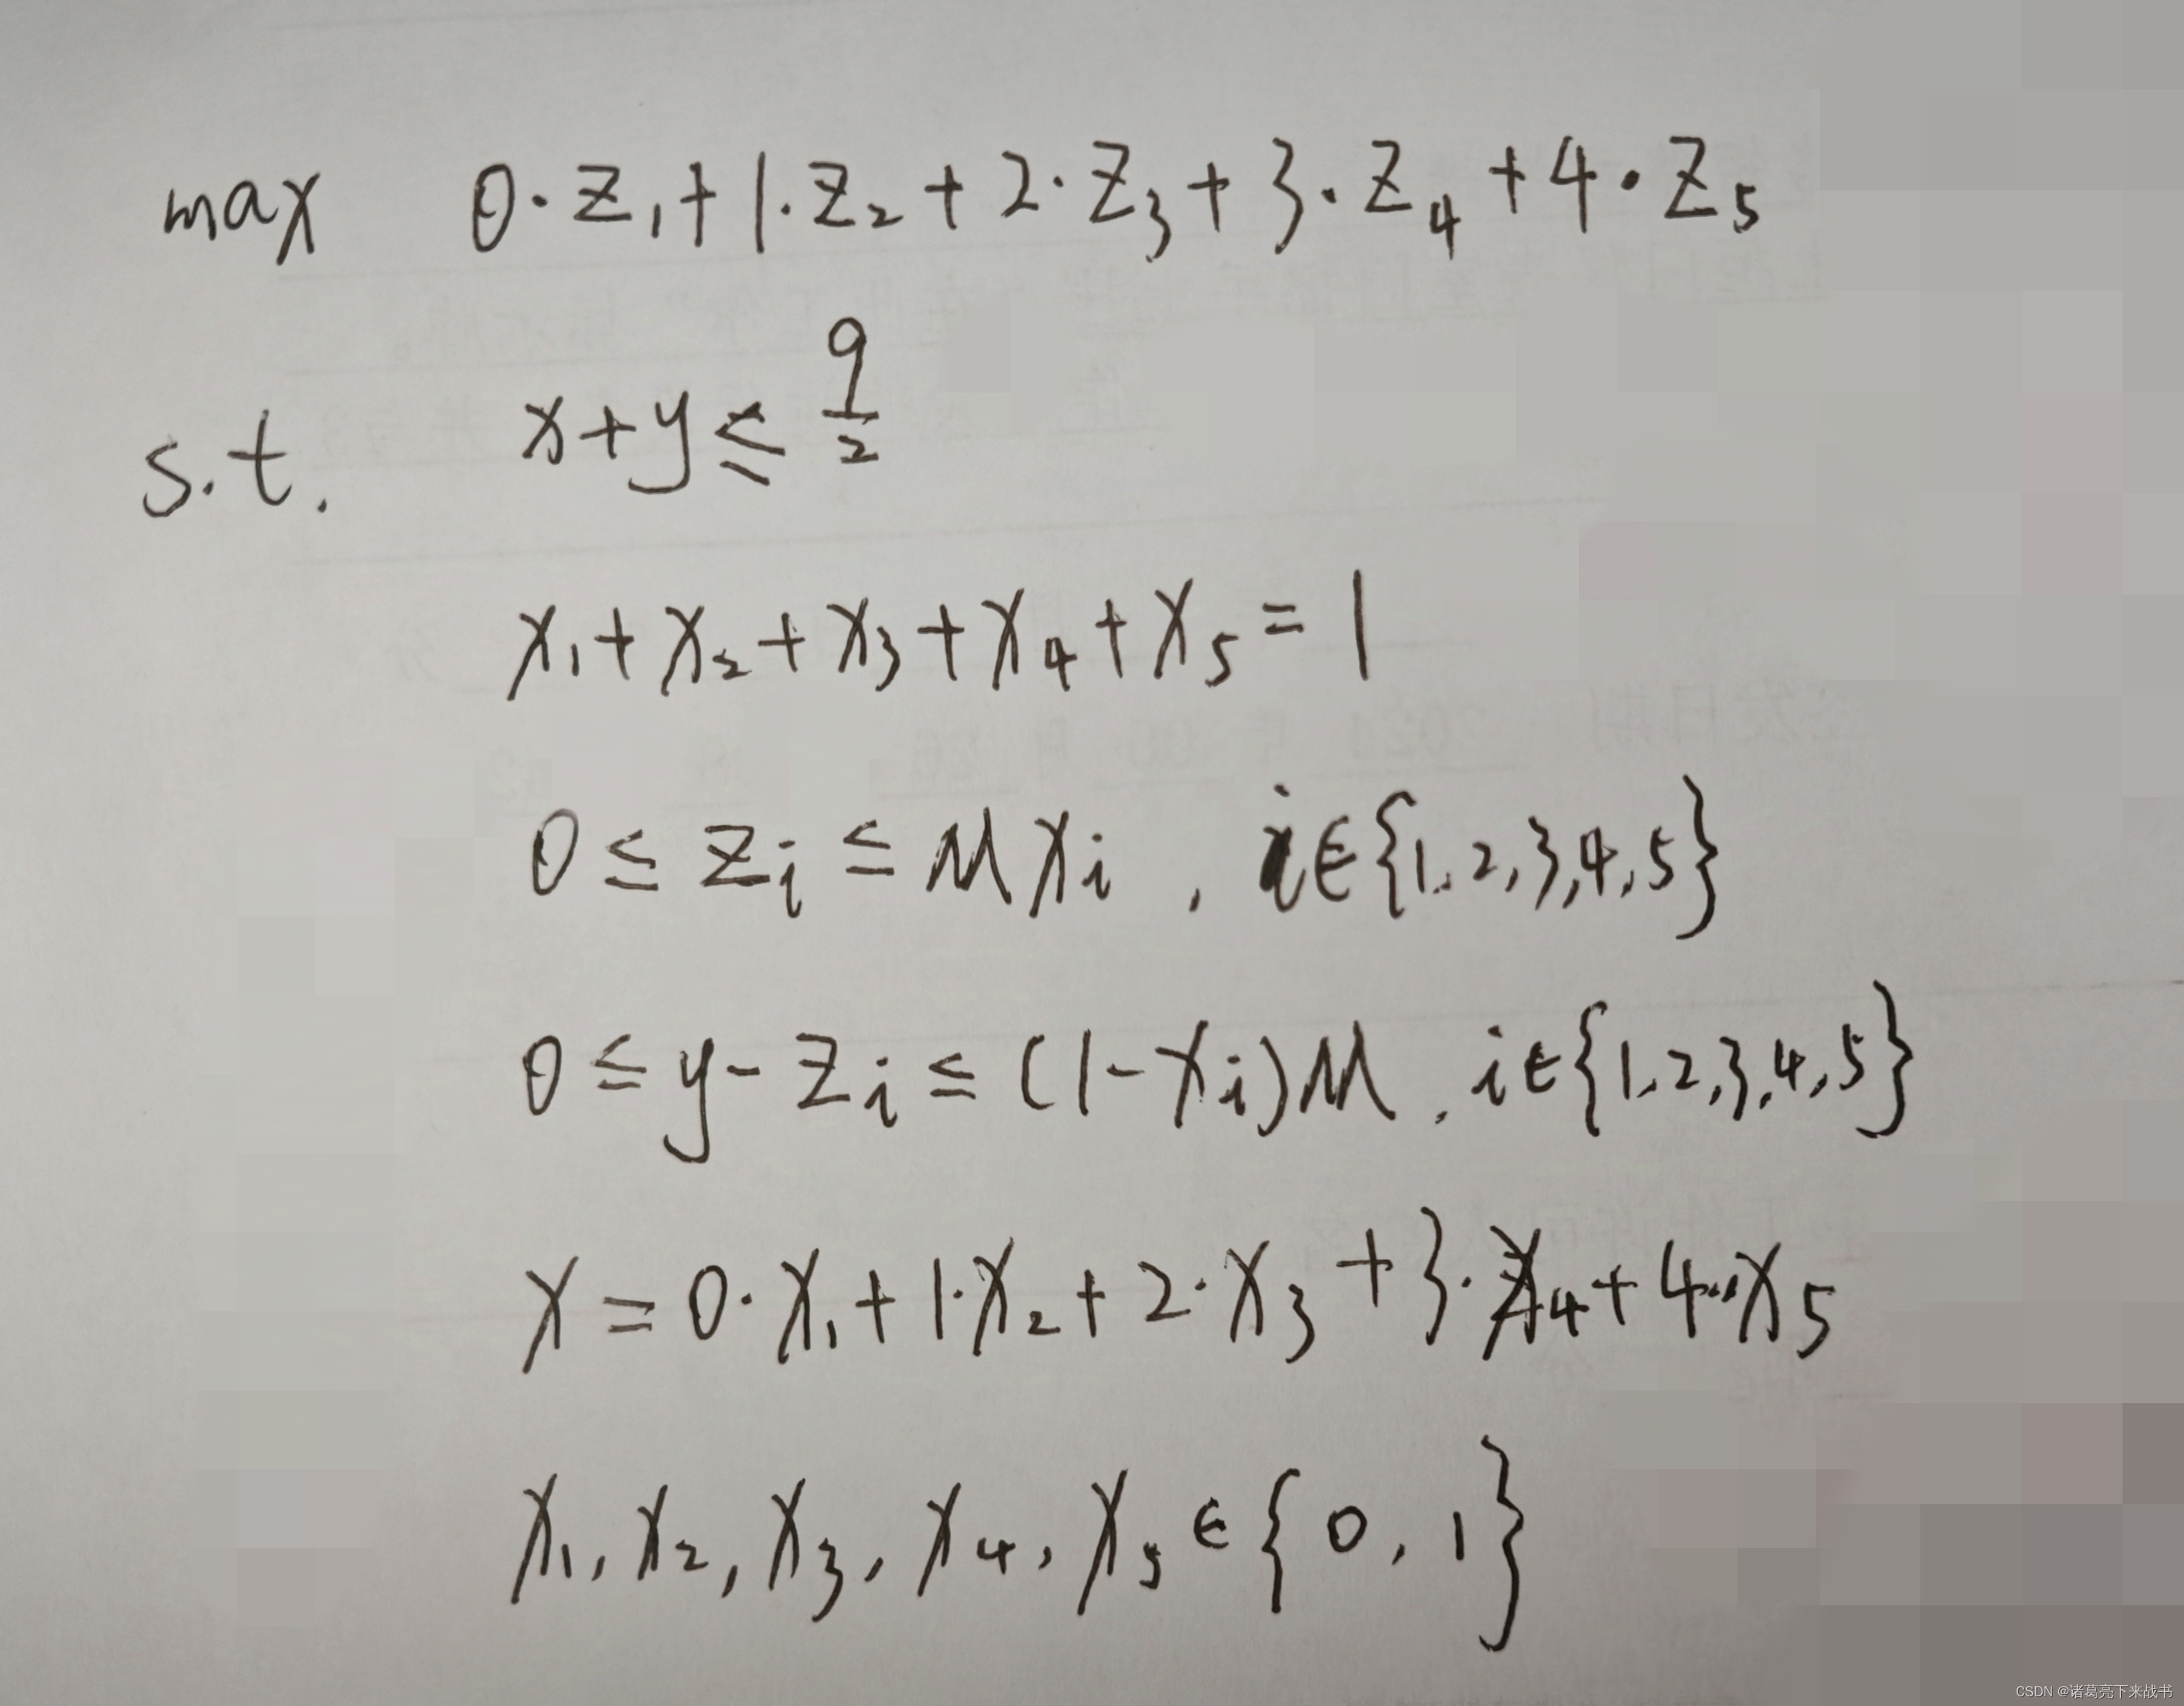 max 0·z₁+1·z₂+2·z₃+3·z₄+4·z₅
s.t. x+y≤9/2
x₁+x₂+x₃+x₄+x₅=1
0≤zᵢ≤Mxᵢ, i∈{1,2,3,4,5}
0≤y-zᵢ≤(1-xᵢ)M, i∈{1,2,3,4,5}
x=0·x₁+1·x₂+2·x₃+3·x₄+4·x₅
x₁,x₂,x₃,x₄,x₅∈{0,1}
CSDN @诸葛亮下来战书